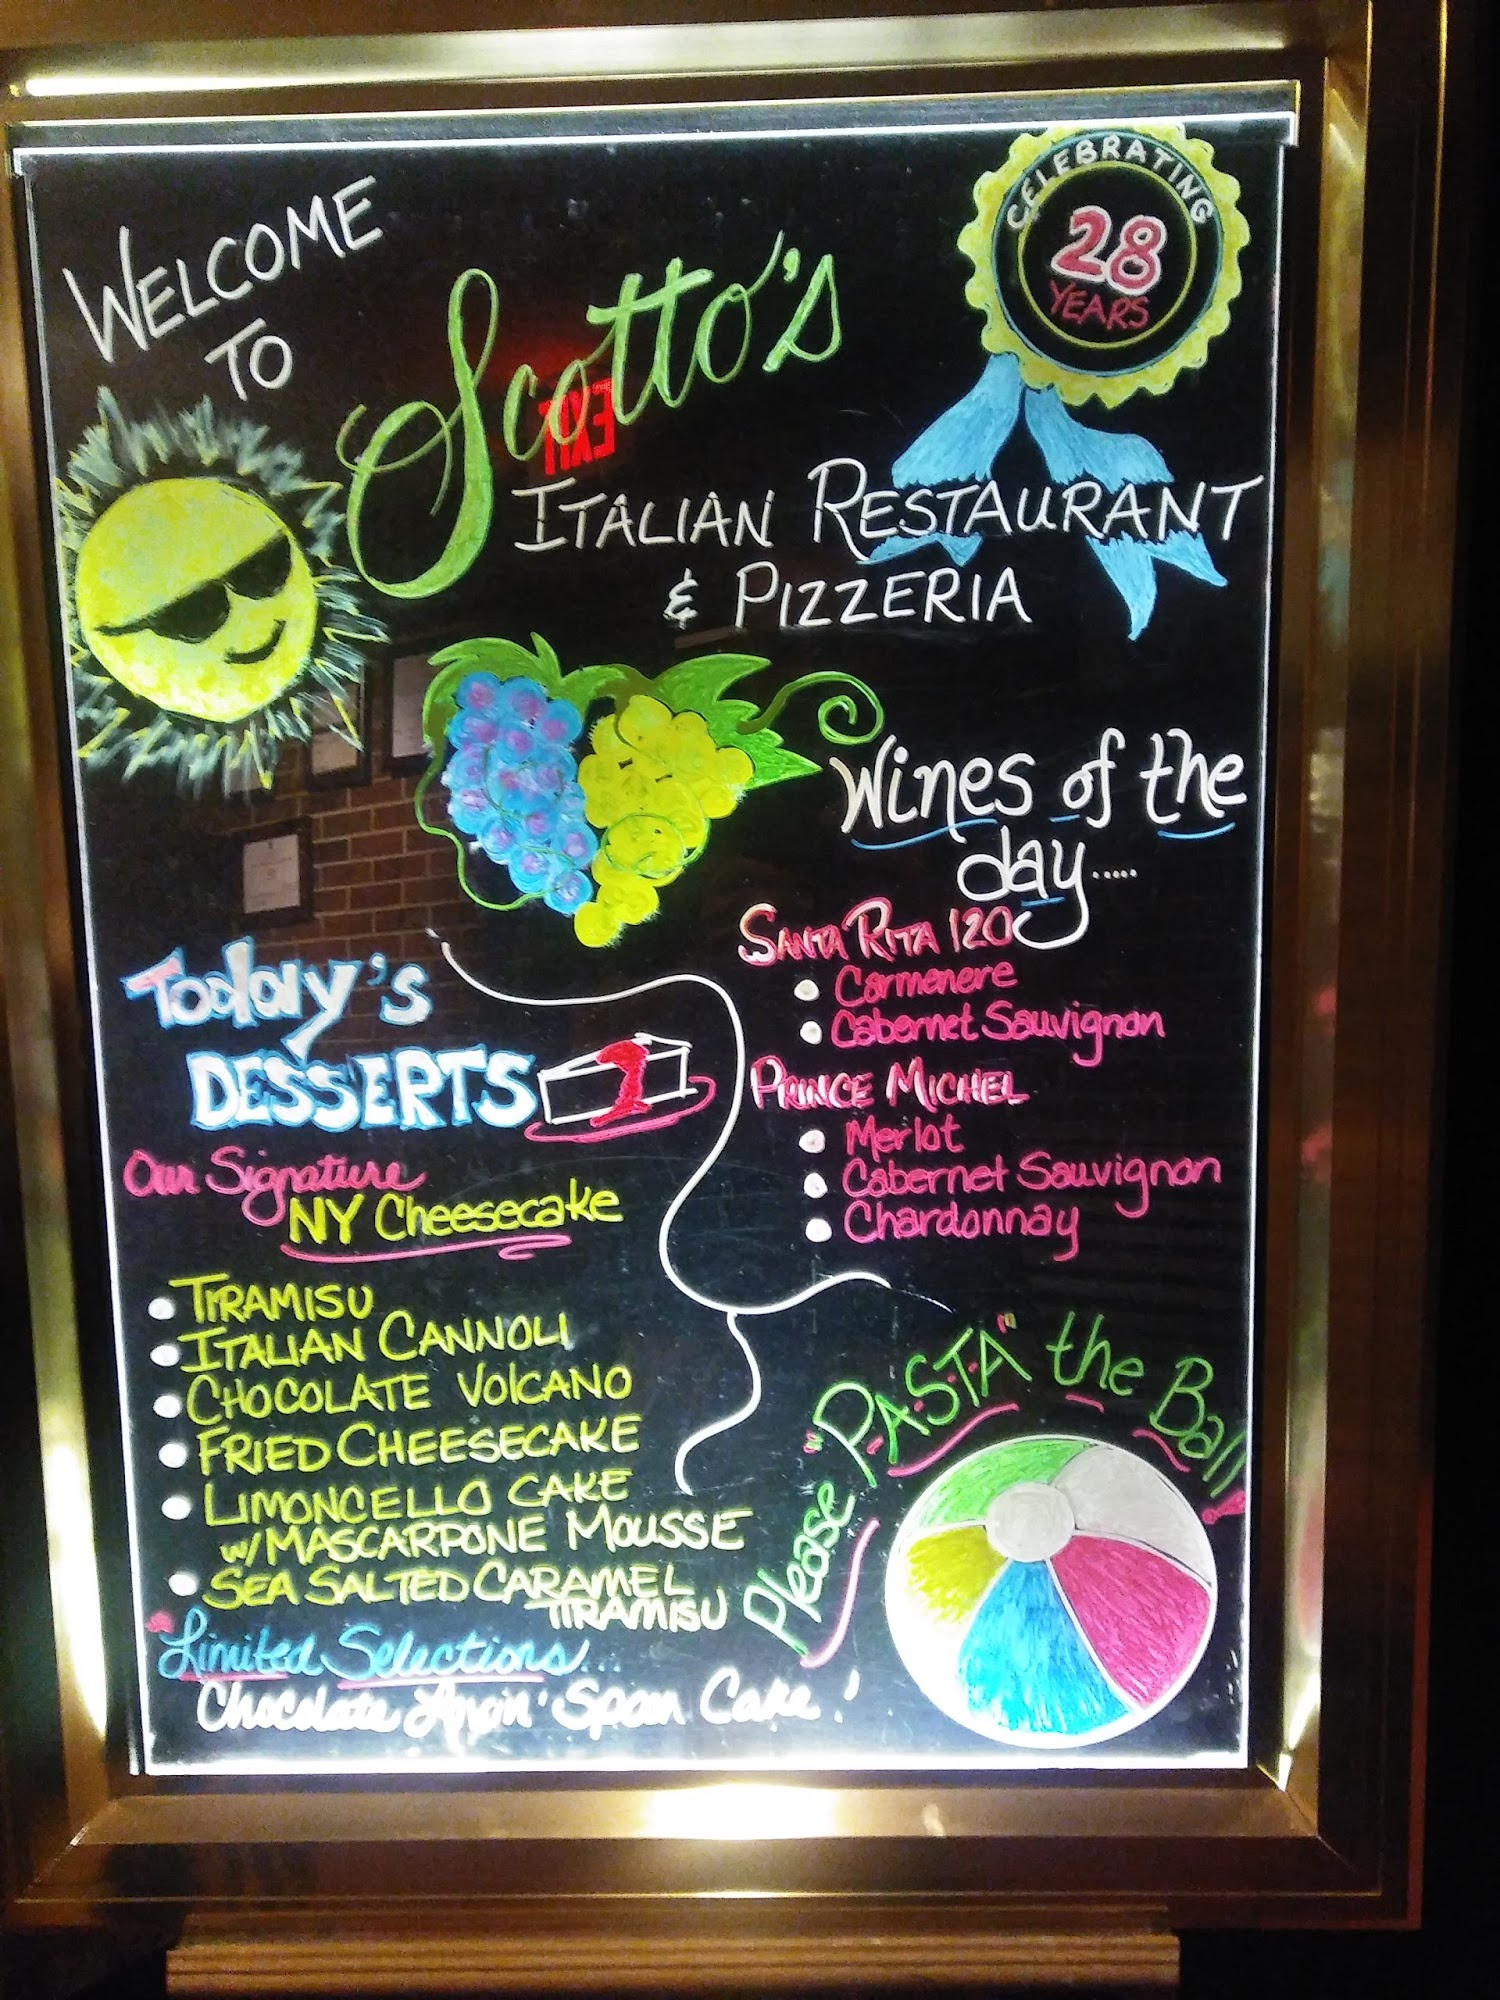 WELCOME
TO
CELEBRATING
28
YEARS
Scotto's
EXIT
ITALIAN RESTAURANT
& PIZZERIA
Wines of the
day.....
SANTA RITA 120
Carmenere
Cabernet Sauvignon
PRINCE MICHEL
Merlot
Cabernet Sauvignon
Chardonnay
Today's
DESSERTS
Our Signature
NY Cheesecake
TIRAMISU
ITALIAN CANNOLI
CHOCOLATE VOLCANO
FRIED CHEESECAKE
LIMONCELLO CAKE
w/MASCARPONE MOUSSE
SEA SALTED CARAMEL
TIRAMISU
Limited Selections...
Chocolate Cake!
Please "P.A.S.T.A" the Ball!